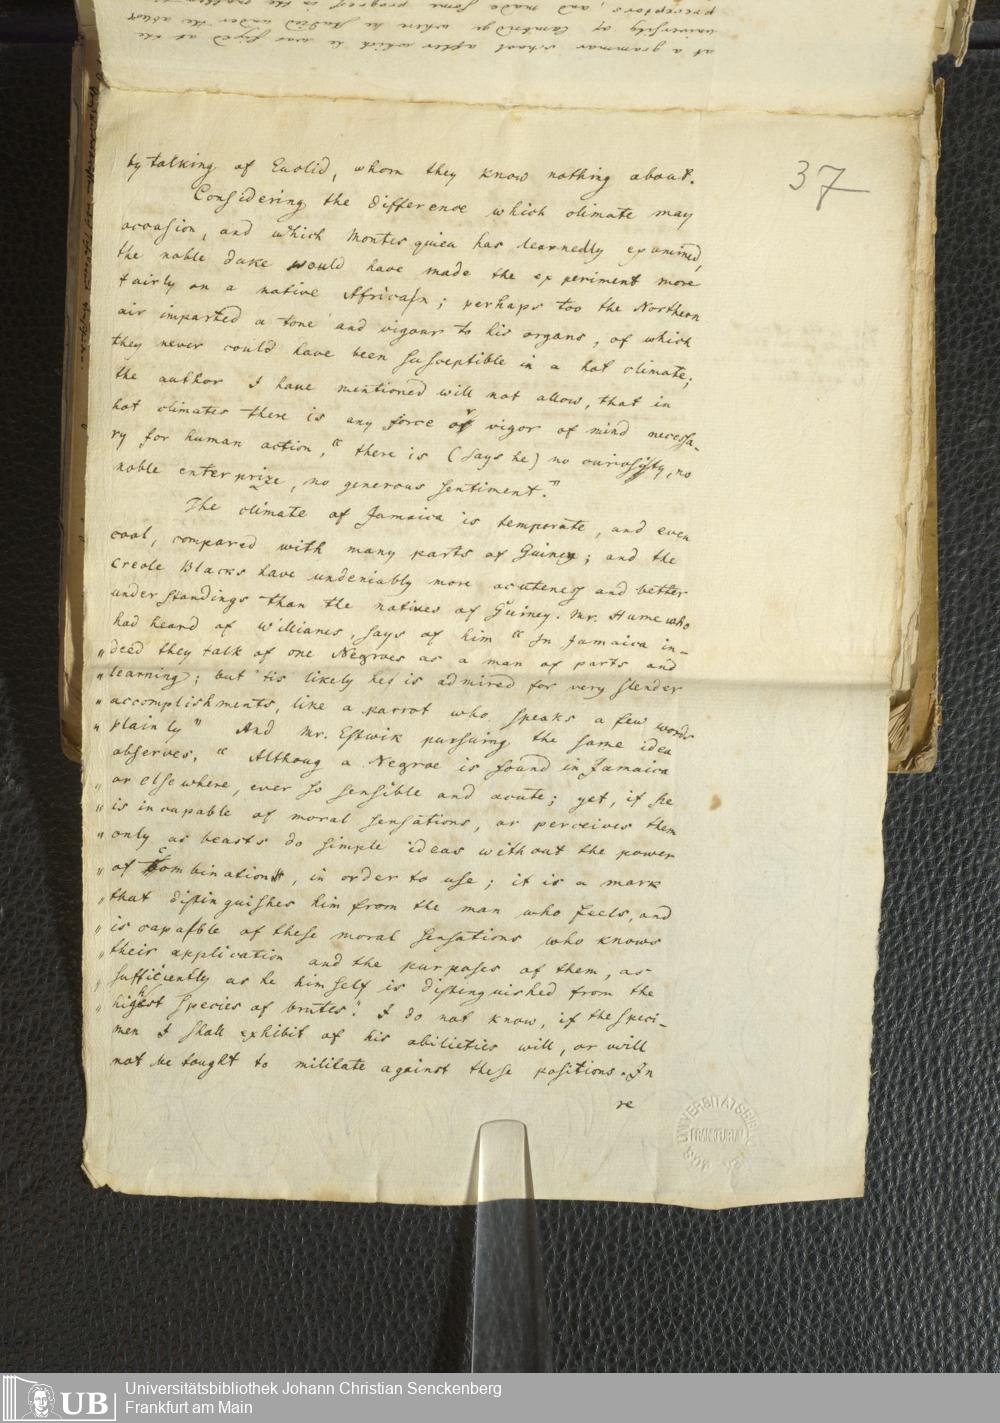 at a grammar school after which he was fixed at the
university of Cambridge where he studied under the ablest
preceptors, and made some progress in the
37
by talking of Euclid, whom they know nothing about.
Considering the difference which climate may
occasion, and which Montesquieu has learnedly examined,
the noble duke would have made the experiment more
fairly on a native African; perhaps too the Northern
air imparted a tone and vigour to his organs, of which
they never could have been susceptible in a hot climate;
the author I have mentioned will not allow, that in
hot climates there is any force or vigor of mind necessa-
ry for human action, "there is (says he) no curiosity, no
noble enterprize, no generous sentiment."
The climate of Jamaica is temperate, and even
cool, compared with many parts of Guiney; and the
Creole Blacks have undeniably more acuteness and better
understandings than the natives of Guiney. Mr. Hume who
had heard of Williams, says of him "In Jamaica in-
"deed they talk of one Negroes as a man of parts and
"learning; but 'tis likely he is admired for very slender
"accomplishments, like a parrot who speaks a few words
"plainly" And Mr. Estwik pursuing the same idea
observes, "Althoug a Negroe is found in Jamaica
"or elsewhere, ever so sensible and acute; yet, if he
"is incapable of moral sensations, or perceives them
"only as beasts do simple ideas without the power
"of Combination, in order to use; it is a mark
"that distinguishes him from the man who feels, and
"is capable of these moral sensations who knows
"their application and the purposes of them, as
"sufficiently as he himself is distinguished from the
"highest species of brutes." I do not know, if the speci-
men I shall exhibit of his abilieties will, or will
not be tought to militate against these positions. In
re
UNIVERSITÄTSBIBL
FRANKFURT
Universitätsbibliothek Johann Christian Senckenberg
UB Frankfurt am Main